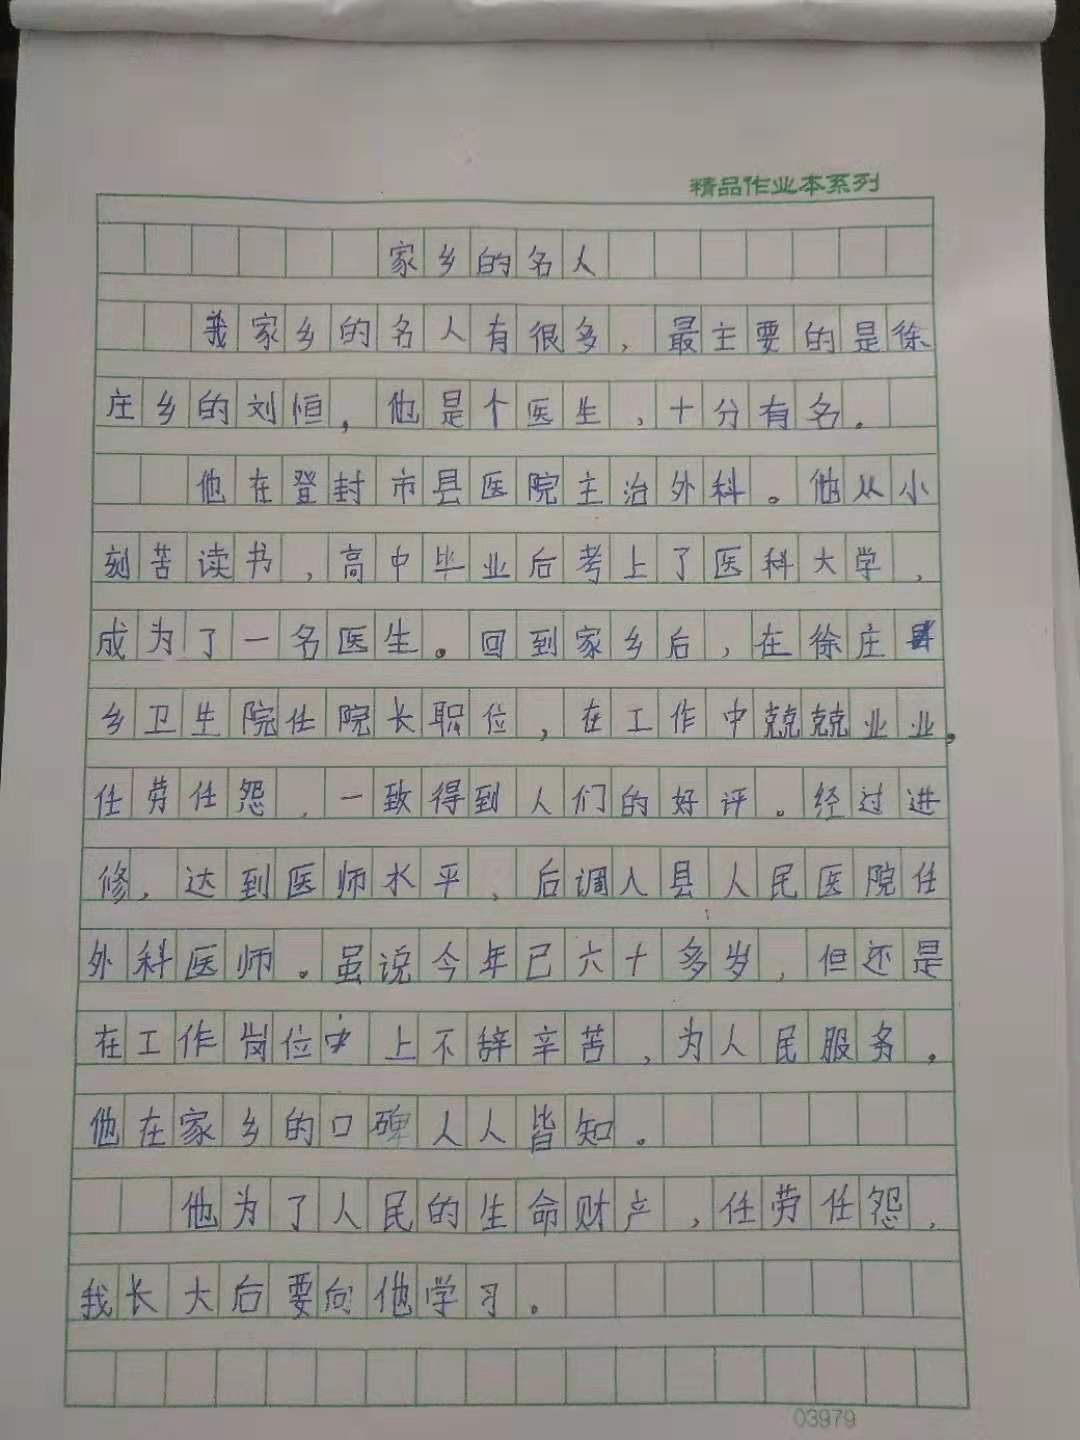 精品作业本系列
家乡的名人
我家乡的名人有很多,最主要的是徐
庄乡的刘恒,他是个医生,十分有名。
他在登封市县医院主治外科。他从小
刻苦读书,高中毕业后考上了医科大学,
成为了一名医生。回到家乡后,在徐庄
乡卫生院任院长职位,在工作中兢兢业业,
任劳任怨,一致得到人们的好评。经过进
修,达到医师水平,后调入县人民医院任
外科医师。虽说今年已六十多岁,但还是
在工作岗位上不辞辛苦,为人民服务,
他在家乡的口碑人人皆知。
他为了人民的生命财产,任劳任怨,
我长大后要向他学习。
03979